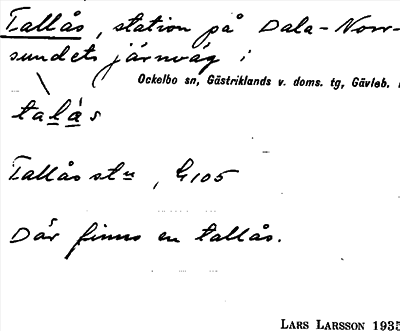 Tallås, station på Dala-Norr-
sundets järnväg i
Ockelbo sn, Gästriklands v. doms. tg, Gävleb.
talás
Tallås stn, G105
Där finns en tallås.
LARS LARSSON 1935